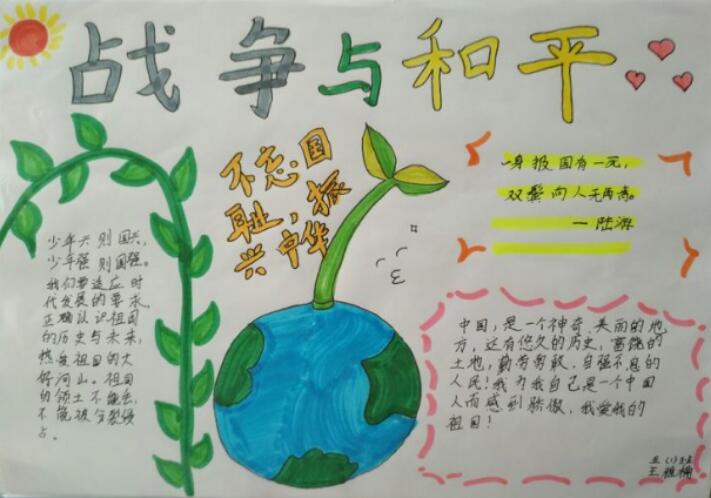 战争与和平
不忘国
耻，振
兴中华
一身报国有一死，
双鬓向人无再青。
—陆游
少年兴则国兴，
少年强则国强。
我们要适应时
代发展的要求，
正确认识祖国
的历史与未来，
热爱祖国的大
好河山。祖国
的领土不能丢，
不能被分裂侵
占。
中国，是一个神奇、美丽的地
方，还有悠久的历史，富饶的
土地，勤劳勇敢、自强不息的
人民！我为我自己是一个中国
人而感到骄傲，我爱我的
祖国！
五(1)班
王雅楠